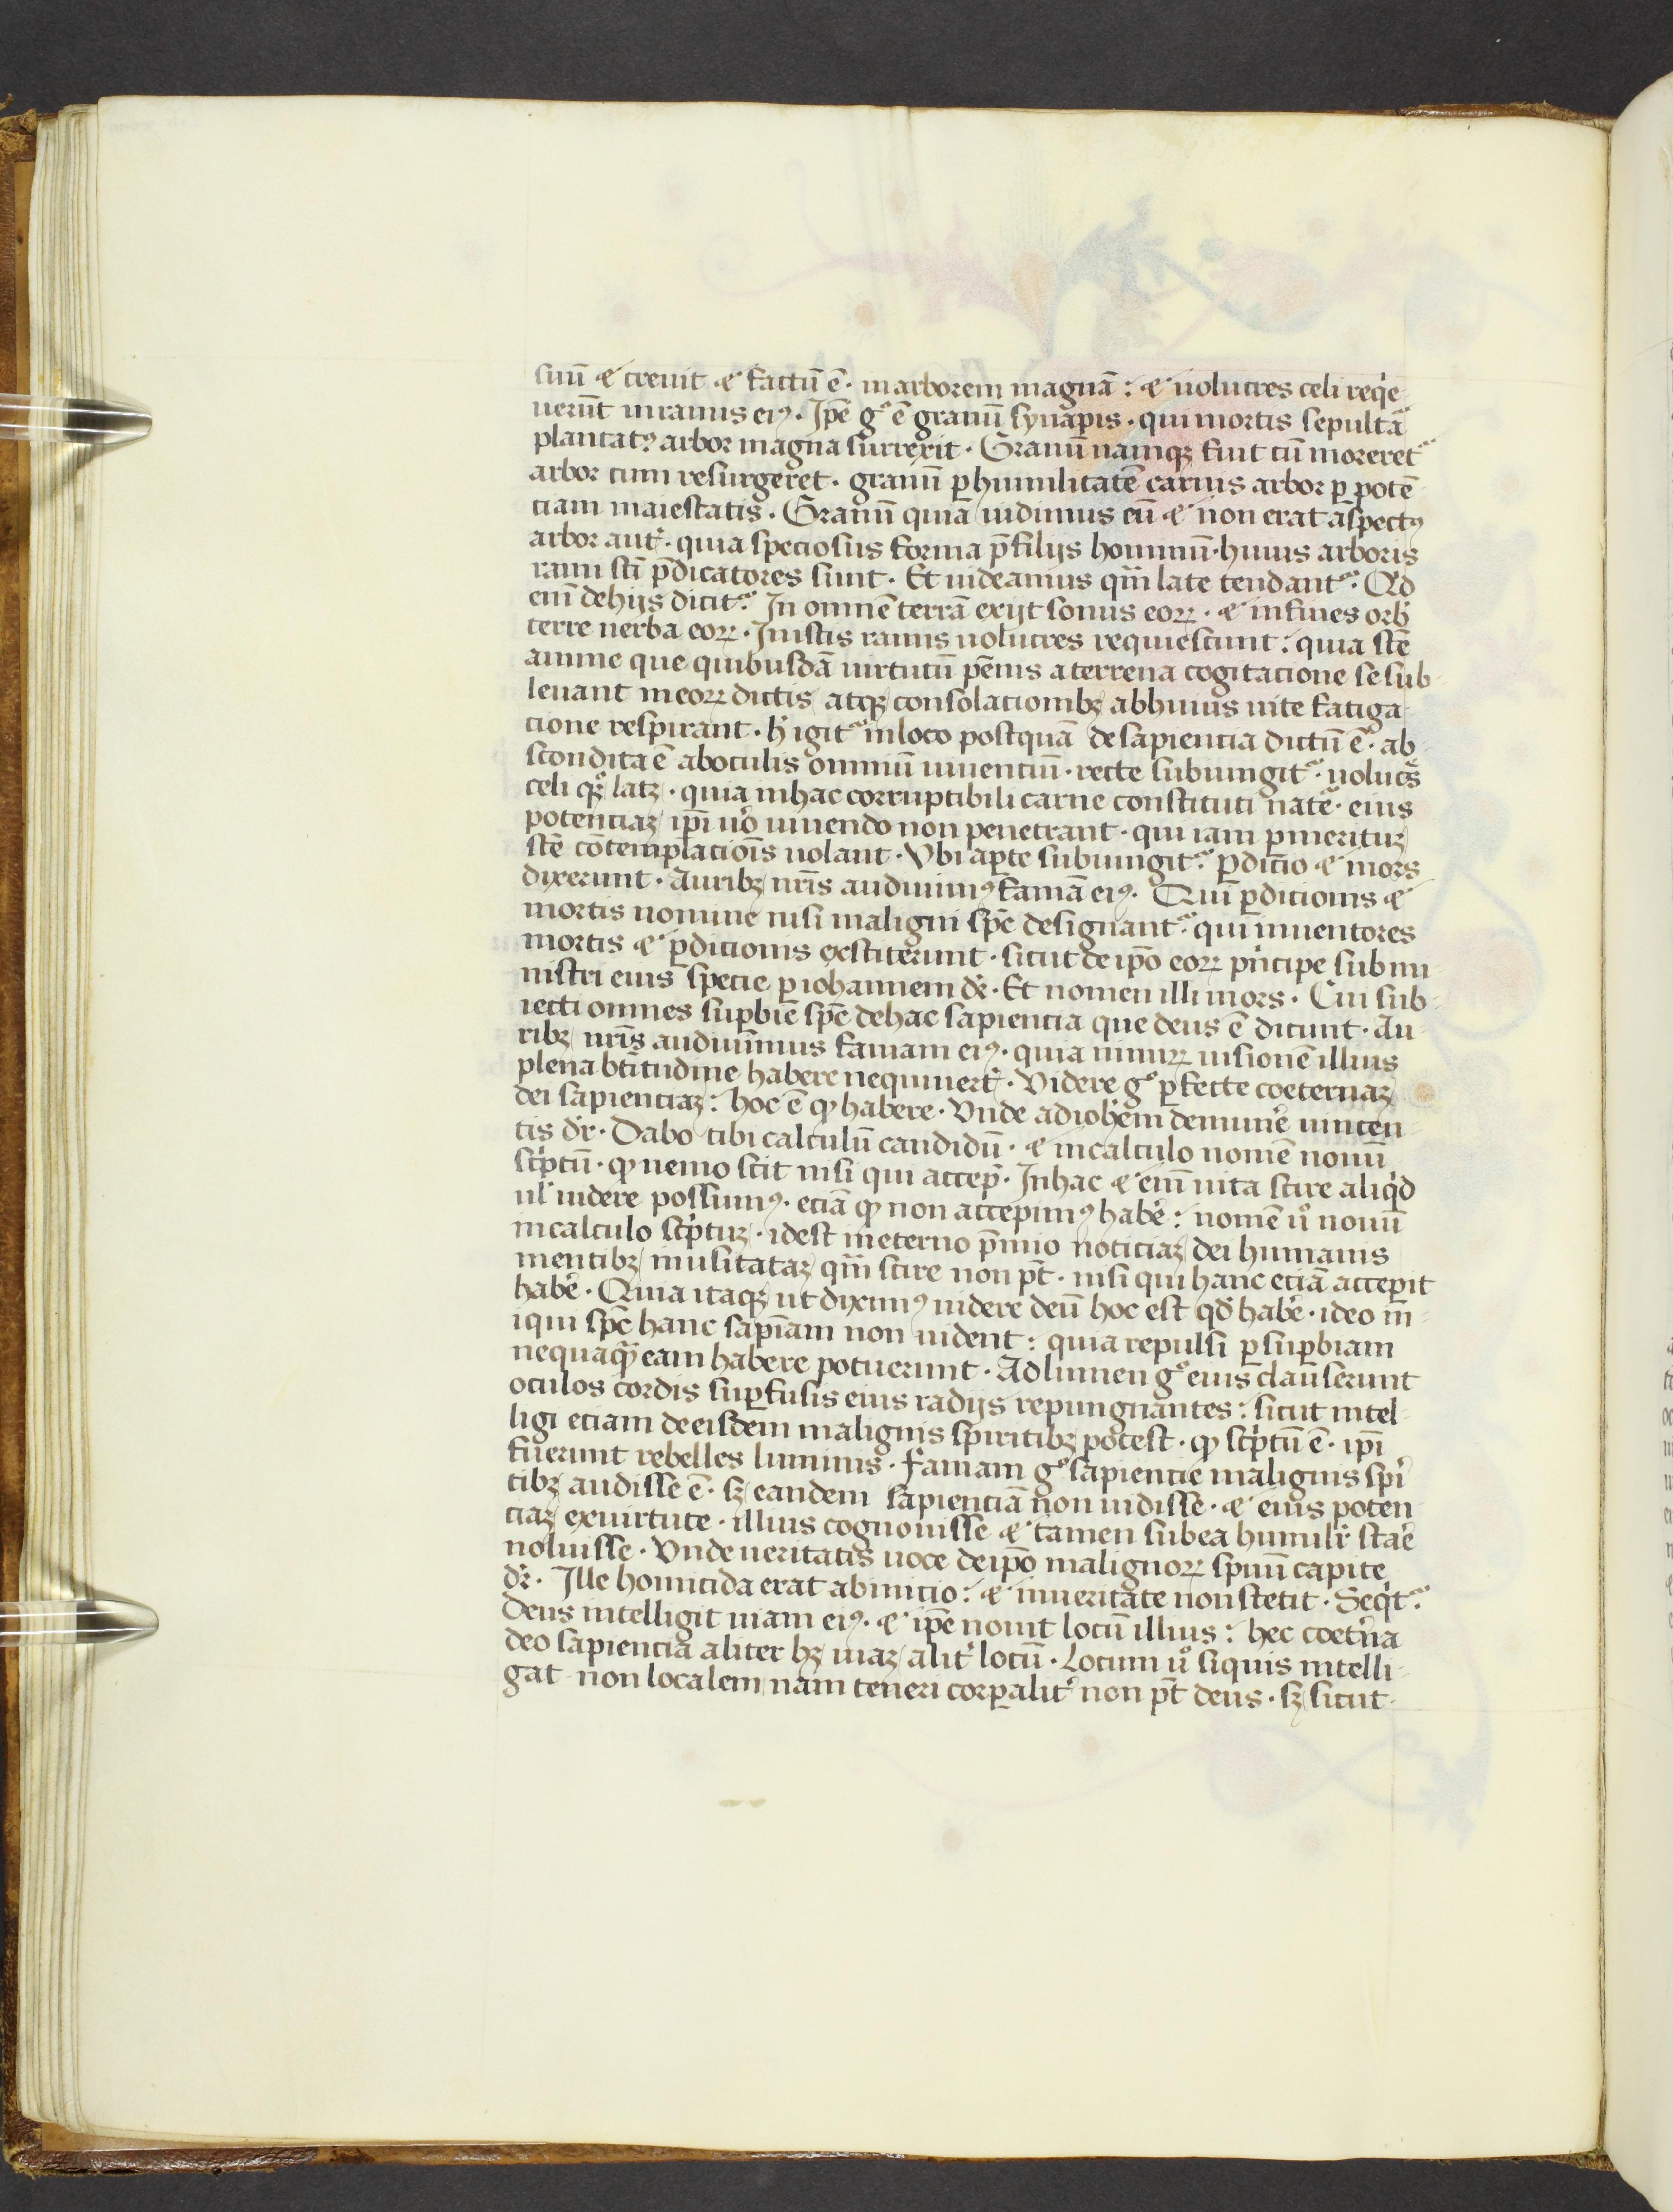 suū & creuit & factū ē· in arborem magnā: & uolucres celi reqⁱe
uerūt in ramis eiꝰ· Ip̄e gͦ ē granū synapis· qui mortis sepultᵃ
plantatꝰ arbor magna surrexit· Granū namqꝫ fuit cū moreretᷣ
arbor cum resurgeret· granū ꝑ humilitatē carnis arbor ꝑ potē
ciam maiestatis· Granū quia uidimus eū & non erat aspectꝰ
arbor aut̄· quia speciosus forma p̄ filijs hominū· huius arboris
rami sc̄i p̄dicatores sunt· Et uideamus qm̄ late tendantᷣ· Qd
eni᷒ de hijs dicitᷣ· In omnē terrā exijt sonus eoꝝ· & in fines orb̉
terre uerba eoꝝ· In istis ramis uolucres requiescunt: quia sc̄e
anime que quibusdā uirtutū pēnis a terrena cogitacione se sub
leuant in eoꝝ dictis atqꝫ consolacionibꝫ ab huius uite fatiga
cione respirant· h̉ igitᷣ in loco postquā de sapiencia dictū ē· ab
scondita ē ab oculis omniū uiuenciū· recte subiungitᷣ· uolucͬs
celi qꝫ latꝫ· quia in hac corruptibili carne constituti natē· eius
potenciaꝫ ip̄i uͦ uiuendo non penetrant· qui iam ꝑ merituꝫ
sc̄e cōtemplaciōis uolant· Vbi aꝑte subiungitᷣ· ꝑdicio & mors
dixerunt· Auribꝫ nr̄is audiuimꝰ famā eiꝰ· Qui᷒ ꝑdicionis &
mortis nomine nisi maligni sp̄c designantᷣ· qui inuentores
mortis & ꝑdicionis exstiterunt· sicut de ip̄o eoꝝ pⁱncipe sub mi
nistri eius specie ꝑ iohannem dr̄· Et nomen illi mors· Cui sub
iecti omnes suꝑbie sp̄c de hac sapiencia que deus ē dicunt· Au
ribꝫ nr̄is audiuimus famam eiꝰ· quia nimiꝝ uisionē illius
plena bt̄itudine habere nequiuert̄· Videre gͦ ꝑfecte coeternaꝫ
dei sapienciaꝫ: hoc ē qͥ habere· Vnde ad ioh̄em de mun̉e uincen
tis dr̄· Dabo tibi calculū candidū· & in calculo nomē nouū
scⁱptū· qͥ nemo scit nisi qui accep̉· In hac & eni᷒ uita scire aliqⁱd
ul̉ uidere possumꝰ· eciā qͥ non accepimꝰ hab̉e: nomē uͦ nouū
in calculo scⁱptuꝫ· idest in eterno p̄mio noticiaꝫ dei humanis
mentibꝫ inusitataꝫ qm̄ scire non pt̄· nisi qui hanc eciā accepit
hab̉e· Quia itaqꝫ ut diximꝰ uidere deū hoc est qd̉ hab̉e· ideo in
iqui sp̄c hanc sap̄iam non uident: quia repulsi ꝑ suꝑbiam
nequaqᵃ eam habere potuerunt· Ad lumen gͦ eius clauserunt
oculos cordis suꝑfusis eius radijs repungnantes: sicut intel
ligi eciam de eisdem malignis spiritibꝫ potest· qͥ scⁱptū ē· ip̄i
fuerunt rebelles luminis· famam gͦ sapiencie malignis spⁱ
tibꝫ audisse ē· sꝫ eandem sapienciā non uidisse· & eius poten
ciaꝫ ex uirtute· illius cognouisse & tamen sub ea humilr̄ star̉e
noluisse· Vnde ueritatis uoce de ip̄o malignoꝝ spūū capite
dr̄· Ille homicida erat ab inicio: & in ueritate non stetit· Seqⁱtᷣ·
Deus intelligit uiam eiꝰ· & ip̄e nouit locū illius: hec coet̉na
deo sapiencia aliter hꝫ uiaꝫ alit̉ locū· Locum uͦ siquis intelli
gat non localem nam teneri corꝑalit̉ non pt̄ deus· sꝫ sicut